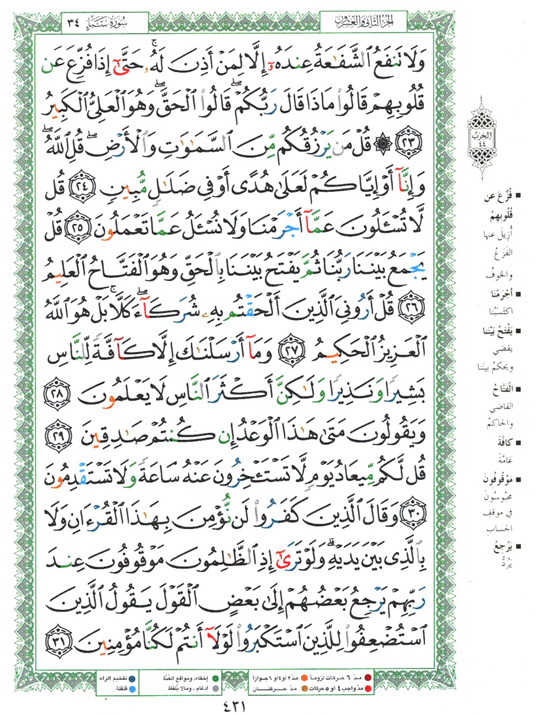 سورة سبأ ٣٤
الجزء الثاني والعشرون
وَلَا تَنفَعُ ٱلشَّفَـٰعَةُ عِندَهُۥٓ إِلَّا لِمَنْ أَذِنَ لَهُۥ ۚ حَتَّىٰٓ إِذَا فُزِّعَ عَن
قُلُوبِهِمْ قَالُوا۟ مَاذَا قَالَ رَبُّكُمْ ۖ قَالُوا۟ ٱلْحَقَّ ۖ وَهُوَ ٱلْعَلِىُّ ٱلْكَبِيرُ
٢٣ ۞ قُلْ مَن يَرْزُقُكُم مِّنَ ٱلسَّمَـٰوَٰتِ وَٱلْأَرْضِ ۖ قُلِ ٱللَّهُ ۖ
وَإِنَّآ أَوْ إِيَّاكُمْ لَعَلَىٰ هُدًى أَوْ فِى ضَلَـٰلٍ مُّبِينٍ ٢٤ قُل
لَّا تُسْـَٔلُونَ عَمَّآ أَجْرَمْنَا وَلَا نُسْـَٔلُ عَمَّا تَعْمَلُونَ ٢٥ قُلْ
يَجْمَعُ بَيْنَنَا رَبُّنَا ثُمَّ يَفْتَحُ بَيْنَنَا بِٱلْحَقِّ وَهُوَ ٱلْفَتَّاحُ ٱلْعَلِيمُ
٢٦ قُلْ أَرُونِىَ ٱلَّذِينَ أَلْحَقْتُم بِهِۦ شُرَكَآءَ ۖ كَلَّا ۚ بَلْ هُوَ ٱللَّهُ
ٱلْعَزِيزُ ٱلْحَكِيمُ ٢٧ وَمَآ أَرْسَلْنَـٰكَ إِلَّا كَآفَّةً لِّلنَّاسِ
بَشِيرًا وَنَذِيرًا وَلَـٰكِنَّ أَكْثَرَ ٱلنَّاسِ لَا يَعْلَمُونَ ٢٨
وَيَقُولُونَ مَتَىٰ هَـٰذَا ٱلْوَعْدُ إِن كُنتُمْ صَـٰدِقِينَ ٢٩
قُل لَّكُم مِّيعَادُ يَوْمٍ لَّا تَسْتَـْٔخِرُونَ عَنْهُ سَاعَةً وَلَا تَسْتَقْدِمُونَ
٣٠ وَقَالَ ٱلَّذِينَ كَفَرُوا۟ لَن نُّؤْمِنَ بِهَـٰذَا ٱلْقُرْءَانِ وَلَا
بِٱلَّذِى بَيْنَ يَدَيْهِ ۗ وَلَوْ تَرَىٰٓ إِذِ ٱلظَّـٰلِمُونَ مَوْقُوفُونَ عِندَ
رَبِّهِمْ يَرْجِعُ بَعْضُهُمْ إِلَىٰ بَعْضٍ ٱلْقَوْلَ يَقُولُ ٱلَّذِينَ
ٱسْتُضْعِفُوا۟ لِلَّذِينَ ٱسْتَكْبَرُوا۟ لَوْلَآ أَنتُمْ لَكُنَّا مُؤْمِنِينَ ٣١
الحزب
٤٤
■ فُزِّعَ عن
قُلُوبِهِمْ
أُزِيلَ عنها
الفَزَعُ
والخوفُ
■ أجْرَمْنَا
اكتسبْنا
■ يَفْتَحُ بَيْنَنا
يقضي
ويحكم بيننا
■ الفَتَّاحُ
القاضي
والحاكمُ
■ كافّةً
عامّةً
■ مَوْقُوفون
محبوسُونَ
في موقف
الحساب
■ يَرْجِعُ
يَرُدُّ
مدّ ٦ حركات لزوماً
مدّ ٢ أو ٤ أو ٦ جوازاً
مدّ واجب ٤ أو ٥ حركات
مدّ حركتان
إخفاء، ومواقع الغنّة
ادغام، وما لا يلفظ
تفخيم الراء
قلقلة
٤٣١